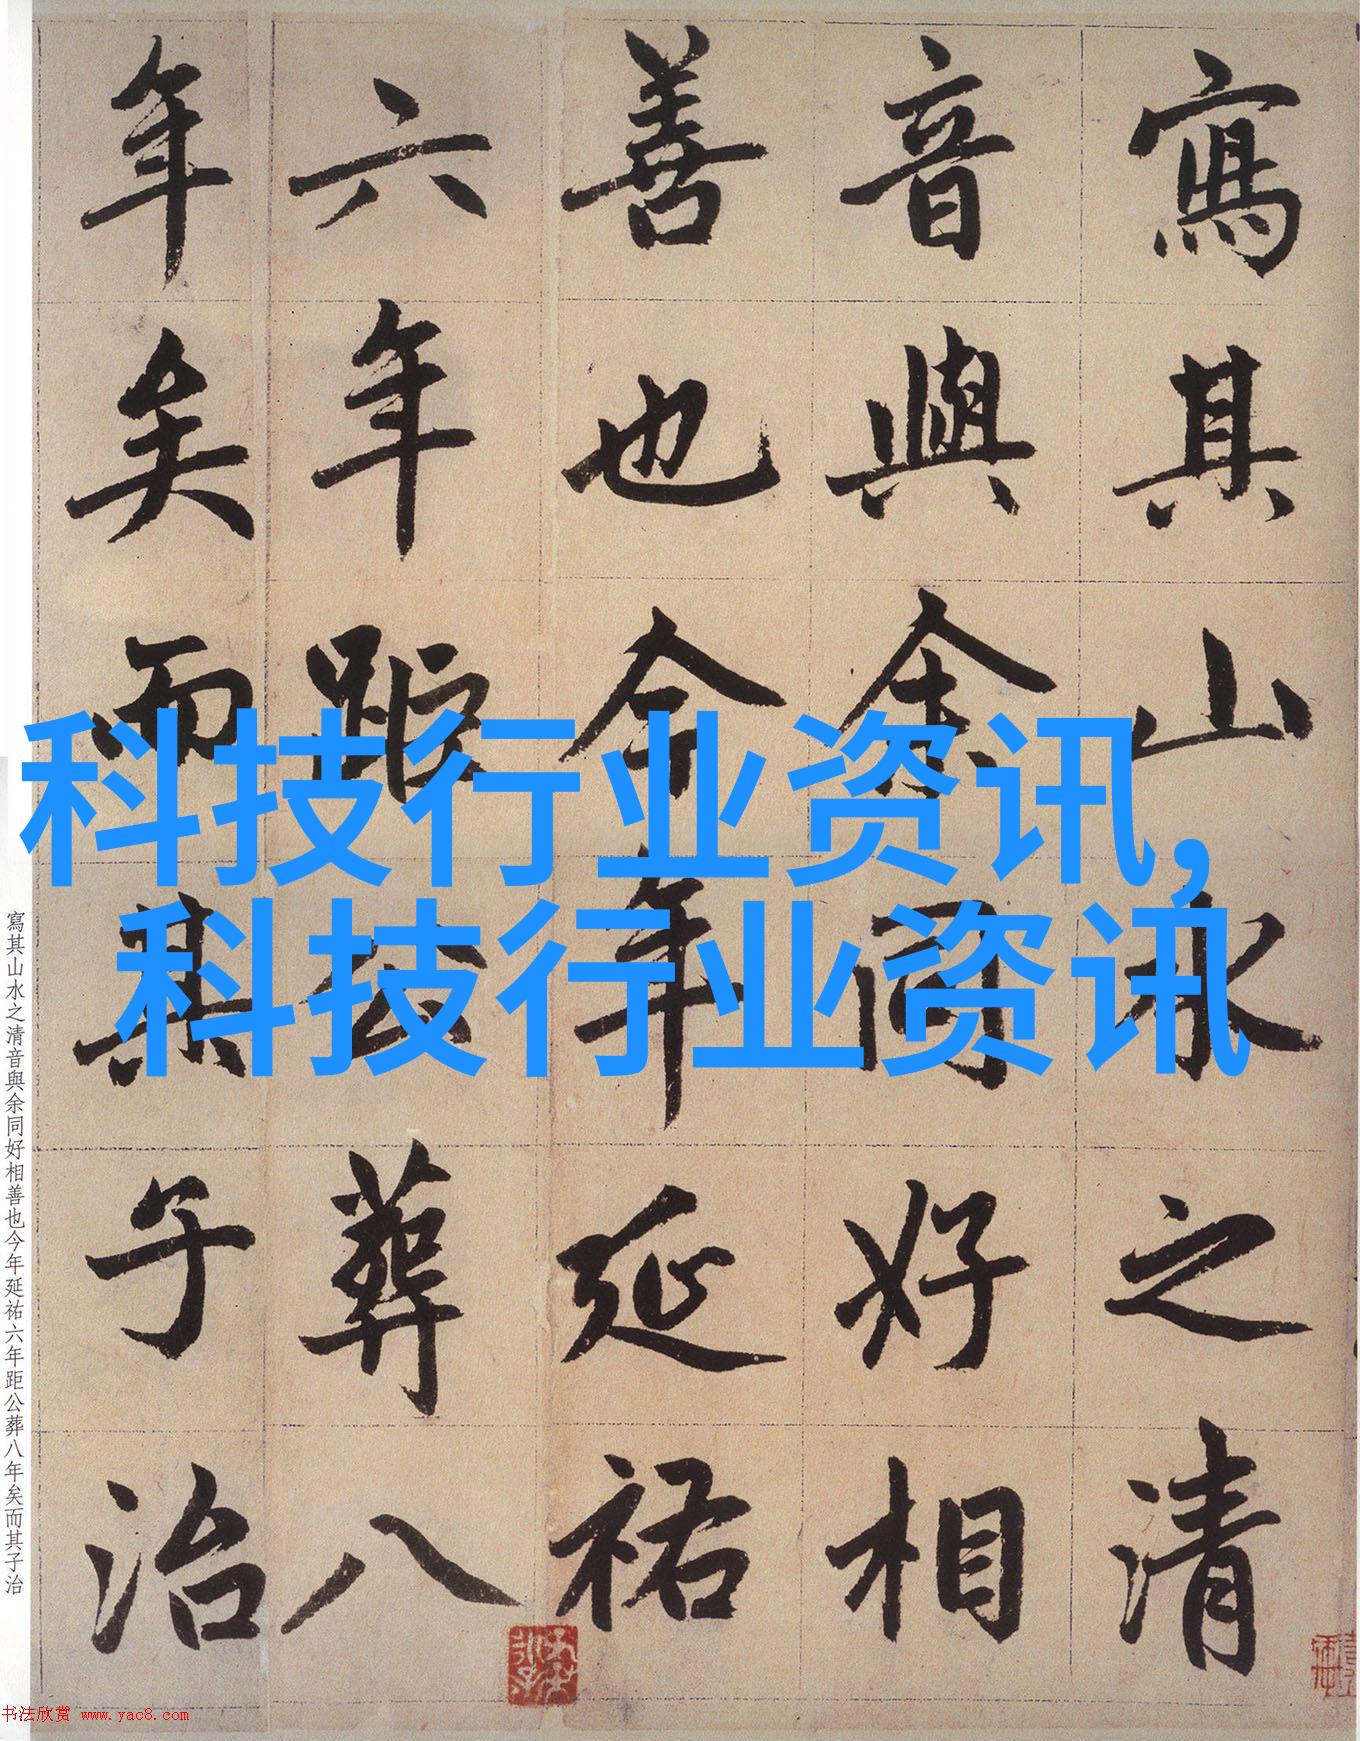 寫其山水之清
音與余同好相
善也今年延祐
六年距公葬八
年矣而其子治
科技行业资讯,
科技行业资讯
寫其山水之清音與余同好相善也今年延祐六年距公葬八年矣而其子治
书法欣赏 www.yac8.com